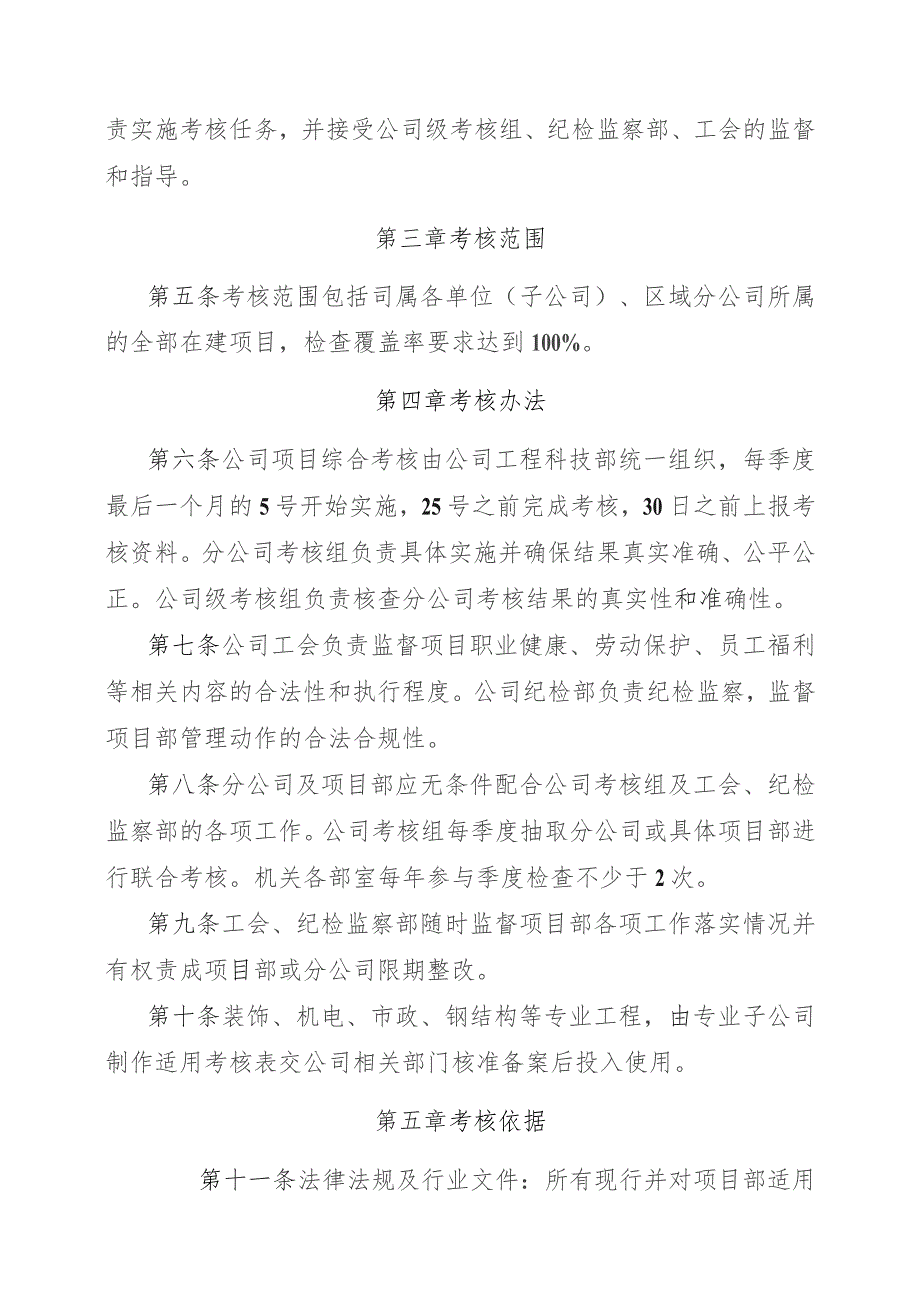 责实施考核任务，并接受公司级考核组、纪检监察部、工会的监督
和指导。
第三章考核范围
第五条考核范围包括司属各单位（子公司）、区域分公司所属
的全部在建项目，检查覆盖率要求达到100%。
第四章考核办法
第六条公司项目综合考核由公司工程科技部统一组织，每季度
最后一个月的5号开始实施，25号之前完成考核，30日之前上报考
核资料。分公司考核组负责具体实施并确保结果真实准确、公平公
正。公司级考核组负责核查分公司考核结果的真实性和准确性。
第七条公司工会负责监督项目职业健康、劳动保护、员工福利
等相关内容的合法性和执行程度。公司纪检部负责纪检监察，监督
项目部管理动作的合法合规性。
第八条分公司及项目部应无条件配合公司考核组及工会、纪检
监察部的各项工作。公司考核组每季度抽取分公司或具体项目部进
行联合考核。机关各部室每年参与季度检查不少于2次。
第九条工会、纪检监察部随时监督项目部各项工作落实情况并
有权责成项目部或分公司限期整改。
第十条装饰、机电、市政、钢结构等专业工程，由专业子公司
制作适用考核表交公司相关部门核准备案后投入使用。
第五章考核依据
第十一条法律法规及行业文件：所有现行并对项目部适用